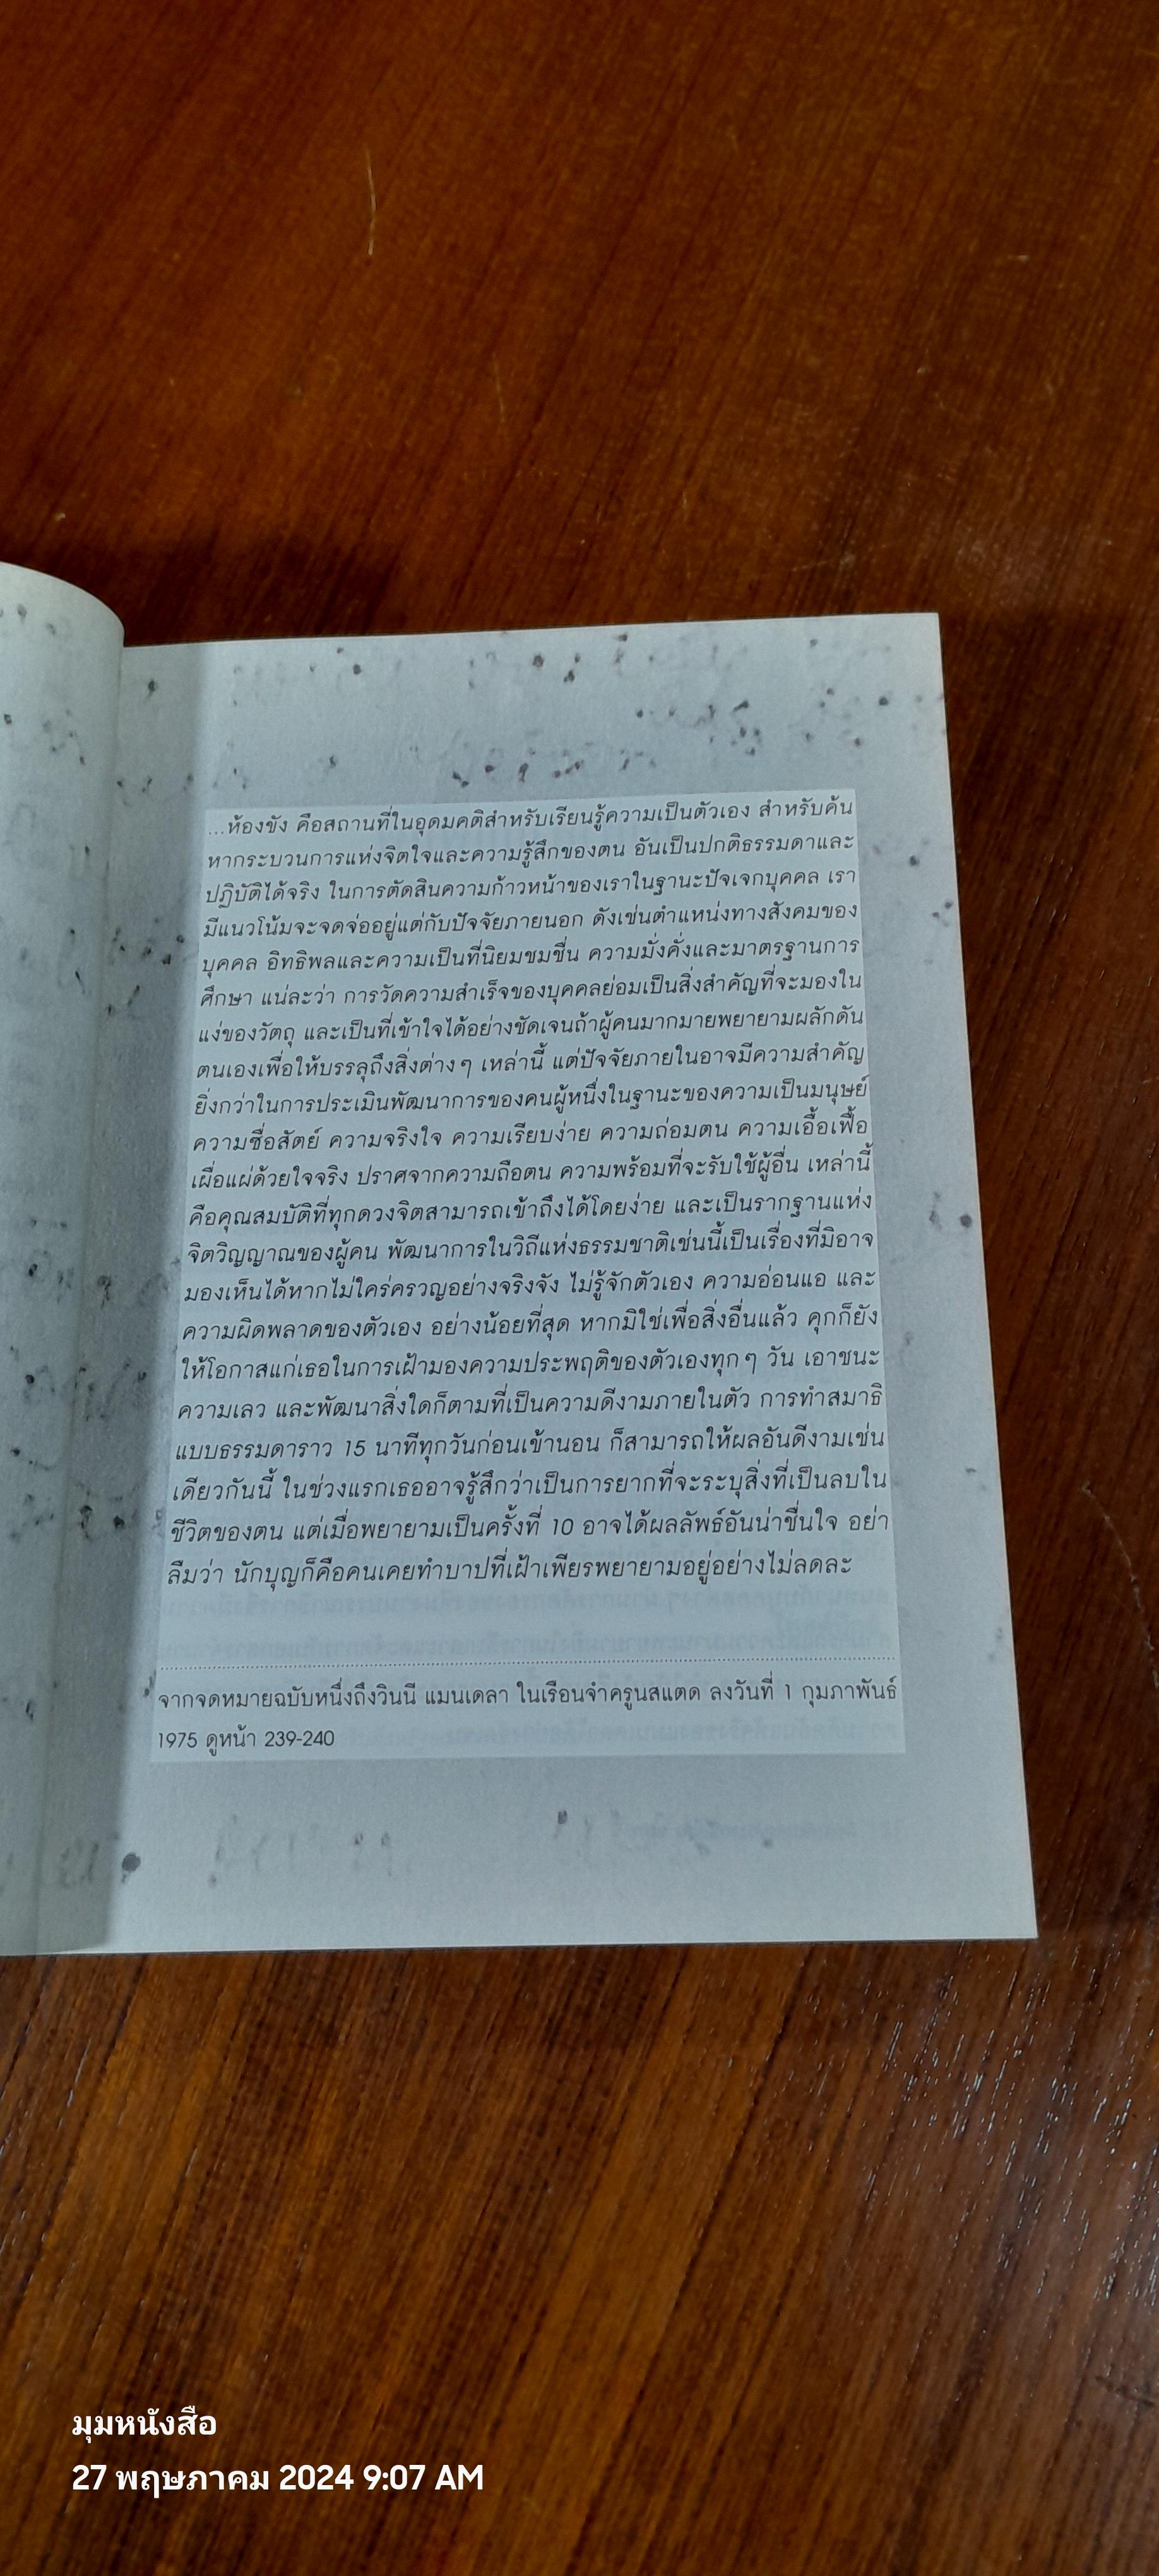 ...ห้องขัง คือสถานที่ในอุดมคติสำหรับเรียนรู้ความเป็นตัวเอง สำหรับค้น
หากระบวนการแห่งจิตใจและความรู้สึกของตน อันเป็นปกติธรรมดาและ
ปฏิบัติได้จริง ในการตัดสินความก้าวหน้าของเราในฐานะปัจเจกบุคคล เรา
มีแนวโน้มจะจดจ่ออยู่แต่กับปัจจัยภายนอก ดังเช่นตำแหน่งทางสังคมของ
บุคคล อิทธิพลและความเป็นที่นิยมชมชื่น ความมั่งคั่งและมาตรฐานการ
ศึกษา แน่ละว่า การวัดความสำเร็จของบุคคลย่อมเป็นสิ่งสำคัญที่จะมองใน
แง่ของวัตถุ และเป็นที่เข้าใจได้อย่างชัดเจนถ้าผู้คนมากมายพยายามผลักดัน
ตนเองเพื่อให้บรรลุถึงสิ่งต่างๆ เหล่านี้ แต่ปัจจัยภายในอาจมีความสำคัญ
ยิ่งกว่าในการประเมินพัฒนาการของคนผู้หนึ่งในฐานะของความเป็นมนุษย์
ความซื่อสัตย์ ความจริงใจ ความเรียบง่าย ความถ่อมตน ความเอื้อเฟื้อ
เผื่อแผ่ด้วยใจจริง ปราศจากความถือตน ความพร้อมที่จะรับใช้ผู้อื่น เหล่านี้
คือคุณสมบัติที่ทุกดวงจิตสามารถเข้าถึงได้โดยง่าย และเป็นรากฐานแห่ง
จิตวิญญาณของผู้คน พัฒนาการในวิถีแห่งธรรมชาติเช่นนี้เป็นเรื่องที่มิอาจ
มองเห็นได้หากไม่ใคร่ครวญอย่างจริงจัง ไม่รู้จักตัวเอง ความอ่อนแอ และ
ความผิดพลาดของตัวเอง อย่างน้อยที่สุด หากมิใช่เพื่อสิ่งอื่นแล้ว คุกก็ยัง
ให้โอกาสแก่เธอในการเฝ้ามองความประพฤติของตัวเองทุกๆ วัน เอาชนะ
ความเลว และพัฒนาสิ่งใดก็ตามที่เป็นความดีงามภายในตัว การทำสมาธิ
แบบธรรมดาราว 15 นาทีทุกวันก่อนเข้านอน ก็สามารถให้ผลอันดีงามเช่น
เดียวกันนี้ ในช่วงแรกเธออาจรู้สึกว่าเป็นการยากที่จะระบุสิ่งที่เป็นลบใน
ชีวิตของตน แต่เมื่อพยายามเป็นครั้งที่ 10 อาจได้ผลลัพธ์อันน่าชื่นใจ อย่า
ลืมว่า นักบุญก็คือคนเคยทำบาปที่เฝ้าเพียรพยายามอยู่อย่างไม่ลดละ
จากจดหมายฉบับหนึ่งถึงวินนี แมนเดลา ในเรือนจำครูนสแตด ลงวันที่ 1 กุมภาพันธ์
1975 ดูหน้า 239-240
มุมหนังสือ
27 พฤษภาคม 2024 9:07 AM